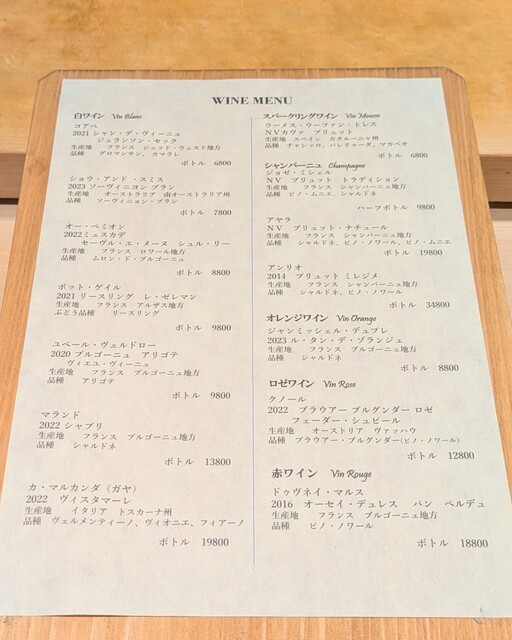 WINE MENU
白ワイン Vin Blanc
コアペ
2021 シャン・デ・ヴィーニュ
ジュランソン・セック
生産地 フランス シュッド・ウェスト地方
品種 グロマンサン、カマラレ
ボトル 6800
ショウ・アンド・スミス
2023 ソーヴィニヨン ブラン
生産地 オーストラリア 南オーストラリア州
品種 ソーヴィニヨン・ブラン
ボトル 7800
オー・ペミオン
2022ミュスカデ
セーヴル・エ・メーヌ シュル・リー
生産地 フランス ロワール地方
品種 ムロン・ド・ブルゴーニュ
ボトル 8800
ボット・ゲイル
2021 リースリング レ・ゼレマン
生産地 フランス アルザス地方
ぶどう品種 リースリング
ボトル 9800
ユベール・ヴェルドロー
2020 ブルゴーニュ アリゴテ
ヴィエユ・ヴィーニュ
生産地 フランス ブルゴーニュ地方
品種 アリゴテ
ボトル 9800
マランド
2022 シャブリ
生産地 フランス ブルゴーニュ地方
品種 シャルドネ
ボトル 13800
カ・マルカンダ（ガヤ）
2022 ヴィスタマーレ
生産地 イタリア トスカーナ州
品種 ヴェルメンティーノ、ヴィオニエ、フィアーノ
ボトル 19800
スパークリングワイン Vin Mousse
ウーメス・ウーファン・トレス
NVカヴァ ブリュット
生産地 スペイン カタルーニャ州
品種 チャレッロ、パレリャーダ、マカベオ
ボトル 6800
シャンパーニュ Champagne
ジョゼ・ミシェル
NV ブリュット トラディション
生産地 フランス シャンパーニュ地方
品種 ピノ・ムニエ、シャルドネ
ハーフボトル 9800
アヤラ
NV ブリュット・ナチュール
生産地 フランス シャンパーニュ地方
品種 シャルドネ、ピノ・ノワール、ピノ・ムニエ
ボトル 19800
アンリオ
2014 ブリュット ミレジメ
生産地 フランス シャンパーニュ地方
品種 シャルドネ、ピノ・ノワール
ボトル 34800
オレンジワイン Vin Orange
ジャンミッシェル・デュプレ
2023 ル・タン・デ・ゾランジュ
生産地 フランス ブルゴーニュ地方
品種 シャルドネ
ボトル 8800
ロゼワイン Vin Rose
クノール
2022 ブラウアー ブルグンダー ロゼ
フェーダー・シュピール
生産地 オーストリア ヴァッハウ
品種 ブラウアー・ブルグンダー(ピノ・ノワール)
ボトル 12800
赤ワイン Vin Rouge
ドゥヴネイ・マルス
2016 オーセイ・デュレス バン ベルデュ
生産地 フランス ブルゴーニュ地方
品種 ピノ・ノワール
ボトル 18800